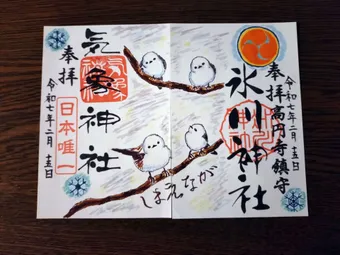 令和七年二月十五日
奉拝 高円寺鎮守
氷川神社
しまえなが
気象神社
奉拝
日本唯一
令和七年二月十五日